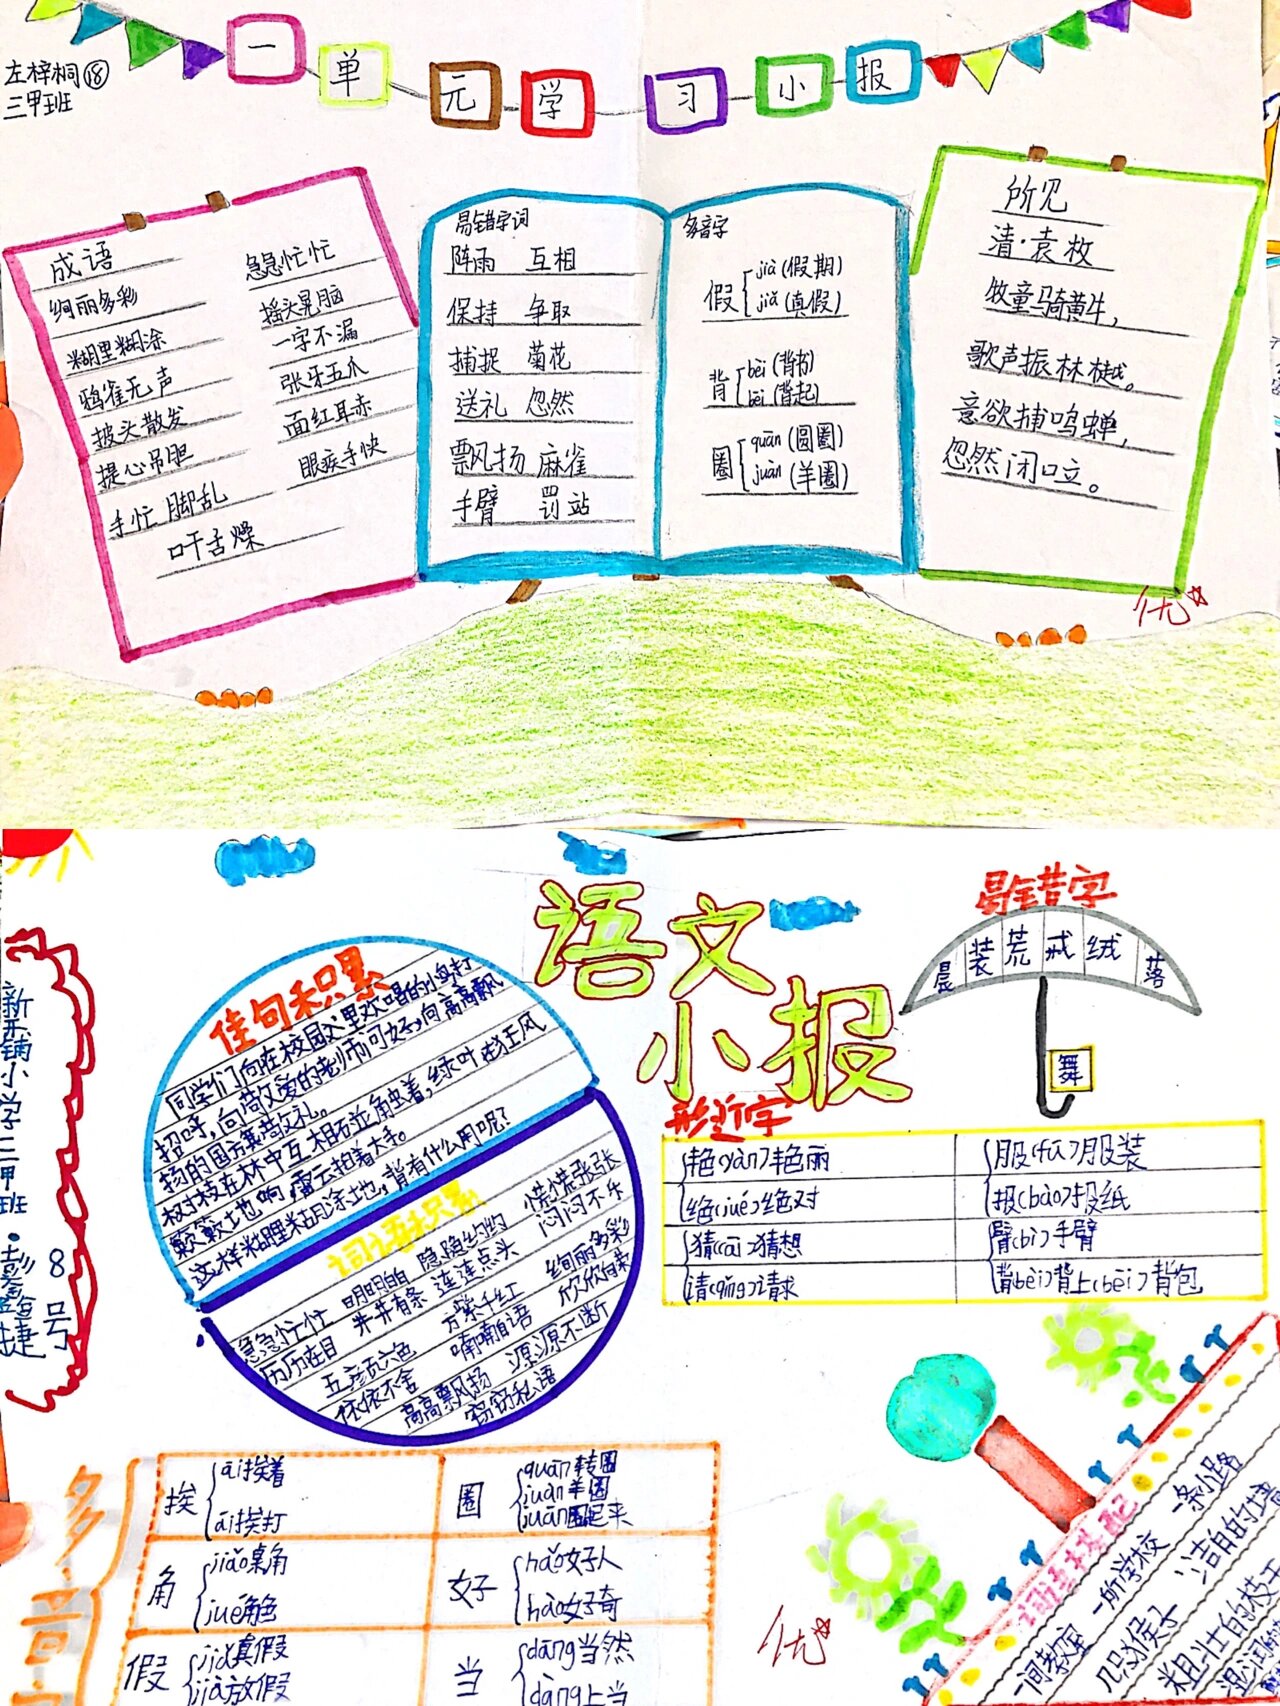 一单元学习小报
左梓桐⑱
三甲班
成语
绚丽多彩
糊里糊涂
鸦雀无声
披头散发
提心吊胆
手忙脚乱
口干舌燥
急急忙忙
摇头晃脑
一字不漏
张牙五爪
面红耳赤
眼疾手快
易错字词
阵雨 互相
保持 争取
捕捉 菊花
送礼 忽然
飘扬 麻雀
手臂 罚站
多音字
假 jià(假期)
jiǎ(真假)
背 bèi(背书)
bēi(背起)
圈 quān(圆圈)
juàn(羊圈)
所见
清·袁枚
牧童骑黄牛,
歌声振林樾。
意欲捕鸣蝉,
忽然闭口立。
优
语文
小报
新开铺小学三甲班
8号
佳句积累
同学们向在校园欢唱的小鸟打
招呼,向敬爱的老师问好,向高高飘
扬的国旗敬礼。
词语积累
急急忙忙 明明白白 隐隐约约 慌慌张张
历历在目 井井有条 连连点头 闷闷不乐
五彦页六色 万紫千红 绚丽多彩
依依不舍 喃喃自语 欣欣向荣
高高飘扬 源源不断
窃窃私语
易错字
晨 装 荒 戒 绒 落
舞
形近字
艳(yàn)艳丽
绝(jué)绝对
猜(cāi)猜想
请(qǐng)请求
服(fú)服装
报(bào)报纸
臂(bì)手臂
背(bèi)背上(bēi)背包
多音
挨 āi挨着
ái挨打
圈 quān转圈
juàn羊圈
juān圈起来
角 jiǎo桌角
jué角色
好 hǎo好人
hào好奇
假 jiǎ真假
jià放假
当 dāng当然
dàng上当
优
词语搭配
一间教室 一所学校 一条小路
几只猴子 洁白的
粗壮的枝干